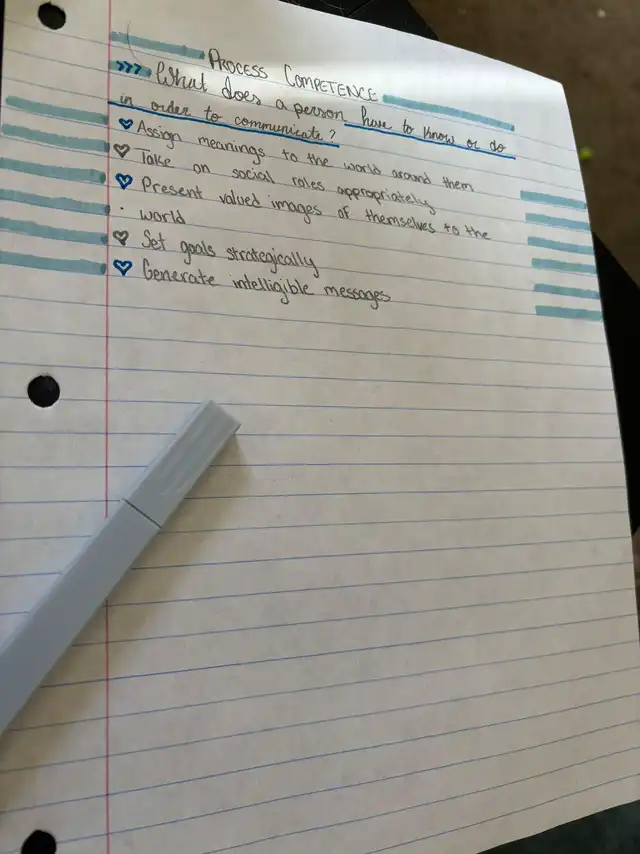 PROCESS COMPETENCE
>>> What does a person have to know or do
in order to communicate?
♡ Assign meanings to the world around them
♡ Take on social roles appropriately
♡ Present valued images of themselves to the
· world
♡ Set goals strategically
♡ Generate intelligible messages